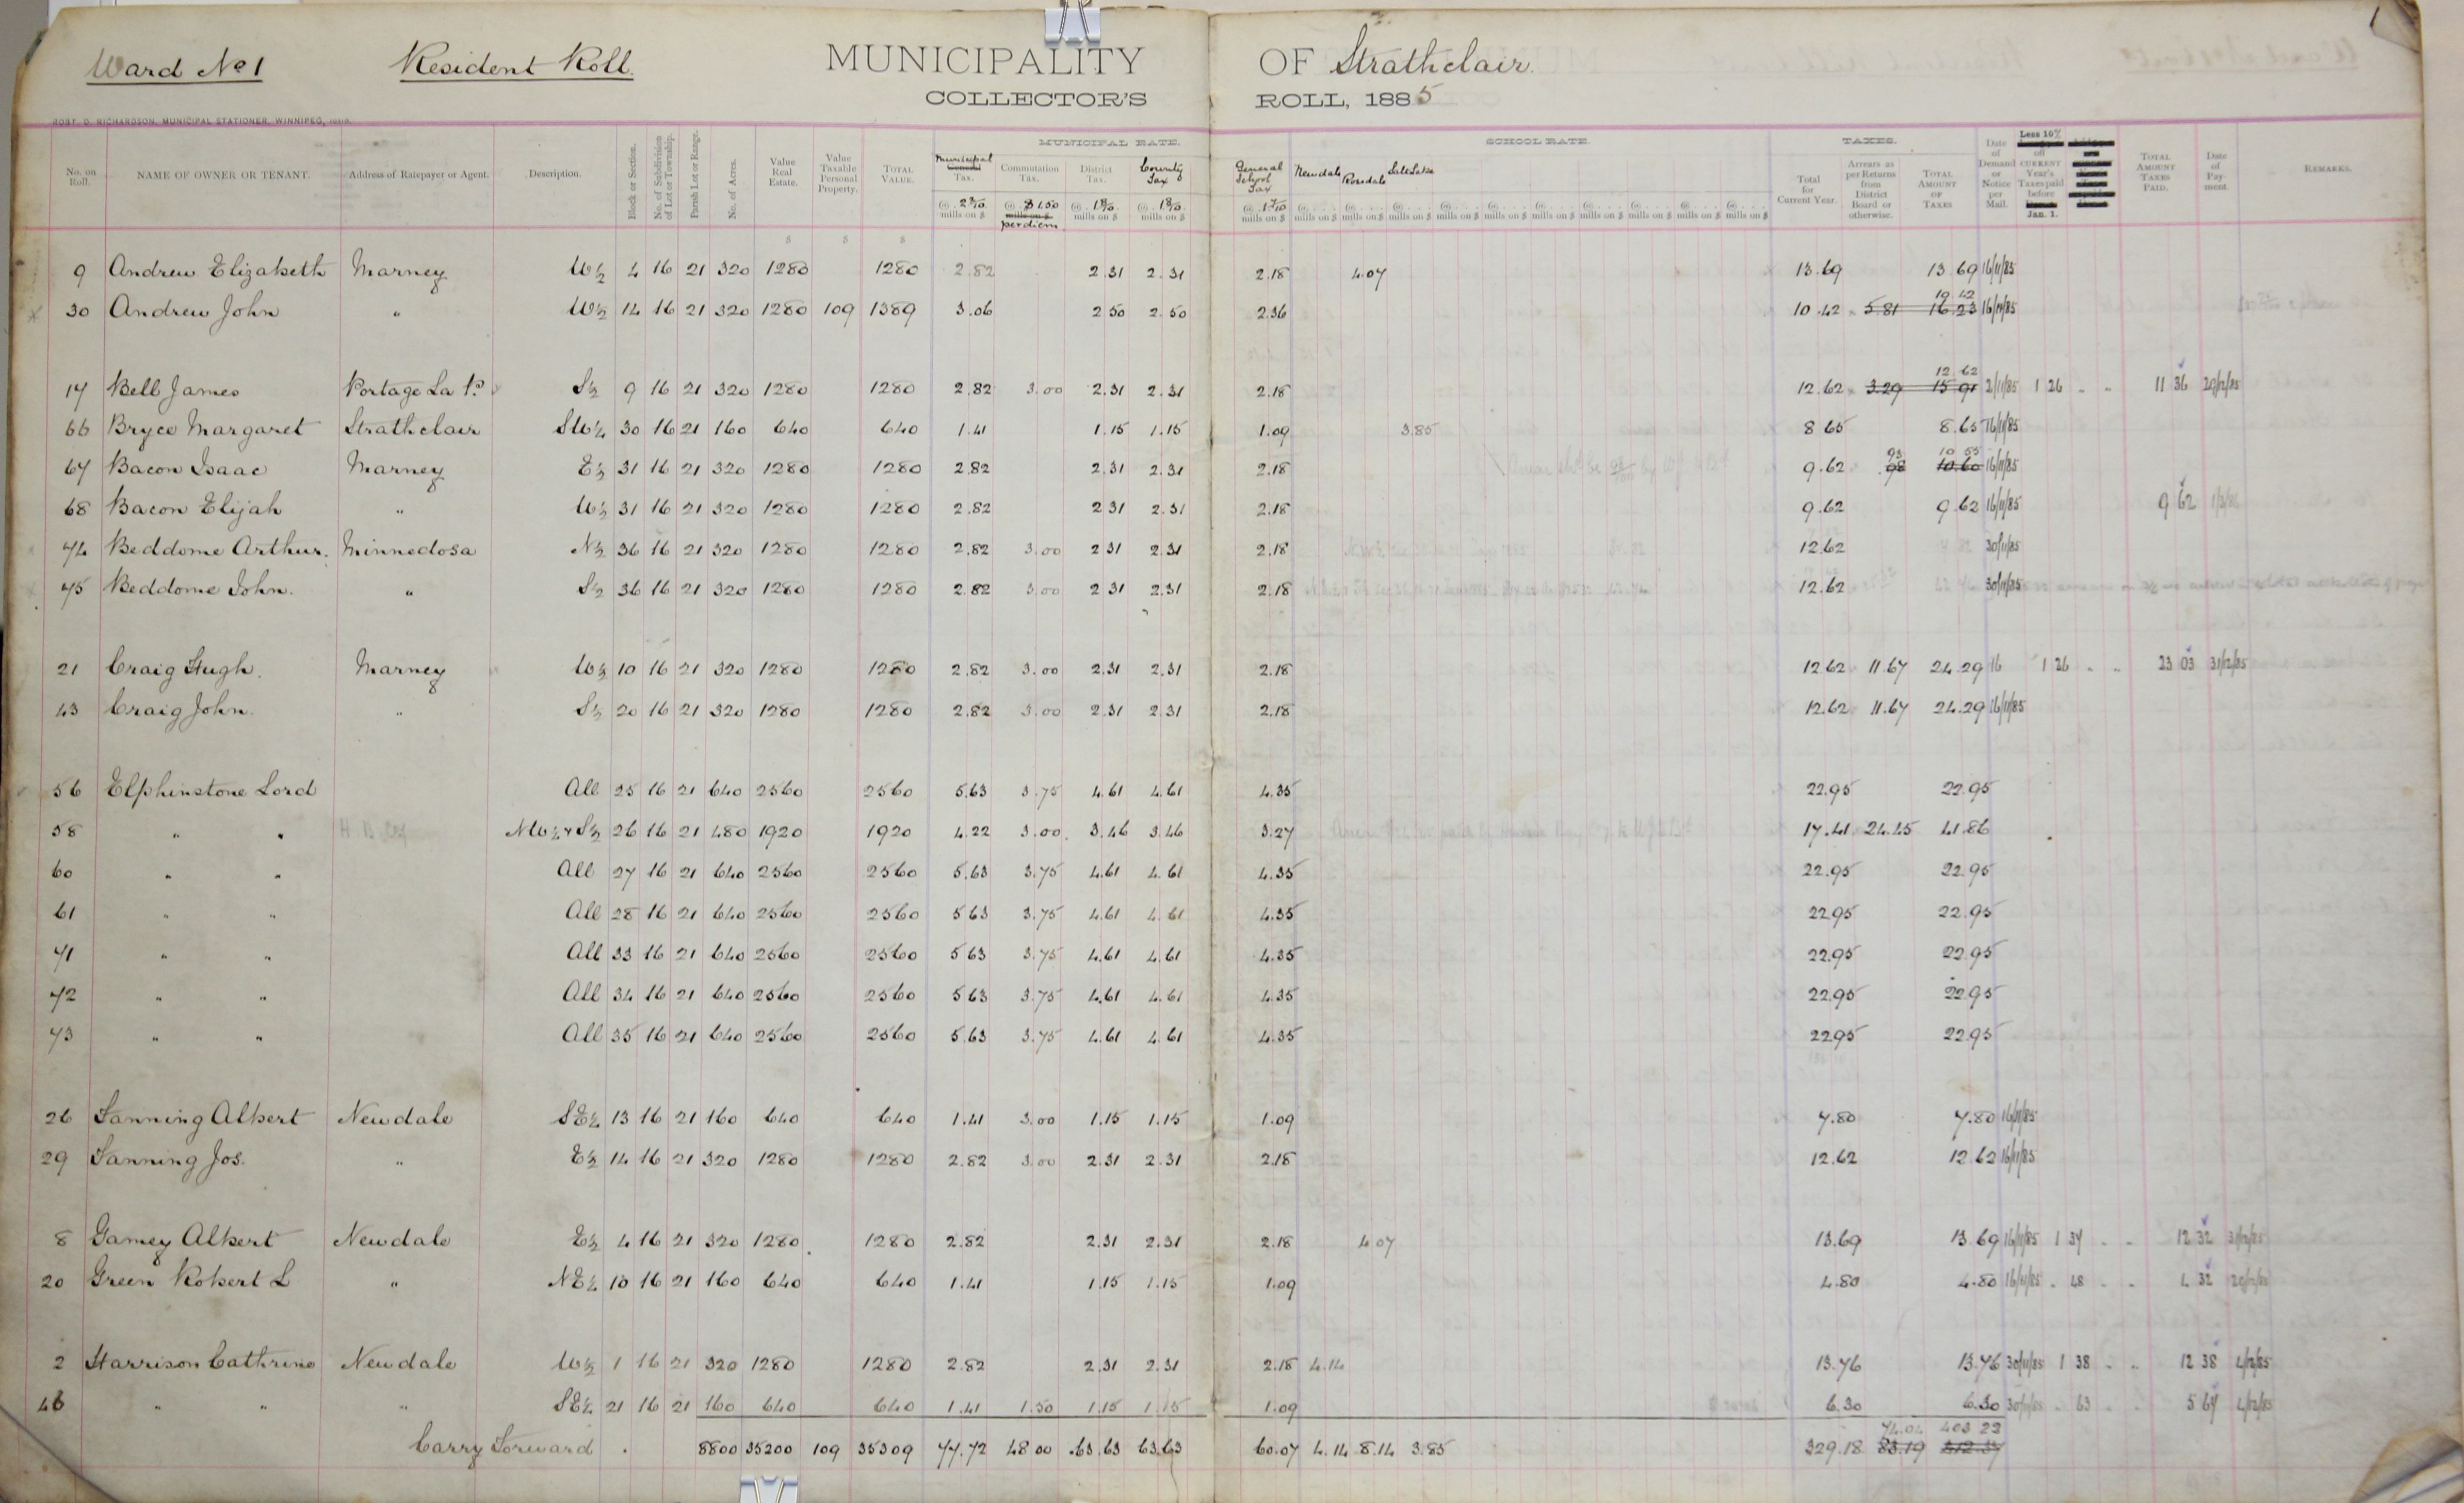 1
Ward No 1 Resident Roll. MUNICIPALITY OF Strathclair.
COLLECTOR'S ROLL, 1885
ROBT. D. RICHARDSON, MUNICIPAL STATIONER, WINNIPEG,
MUNICIPAL RATE. SCHOOL RATE. TAXES.
No. on Roll. NAME OF OWNER OR TENANT. Address of Ratepayer or Agent. Description. Block or Section. No. of Subdivision of Lot or Township. Parish Lot or Range. No. of Acres. Value Real Estate. Value Taxable Personal Property. TOTAL VALUE. Municipal General Tax. Commutation Tax. District Tax. County Tax General School Tax Newdale Rosedale Salt Lake Total for Current Year. Arrears as per Returns from District Board or otherwise. TOTAL AMOUNT OF TAXES Date of Demand or Notice per Mail. Less 10% off CURRENT Year's Taxes paid before Jan. 1. TOTAL AMOUNT TAXES PAID. Date of Payment. REMARKS.
@ 2 2/10 mills on $ @ $1.50 mills on $ per diem @ 1 8/10 mills on $ @ 1 8/10 mills on $ @ 1 7/10 mills on $ @ mills on $ @ mills on $ @ mills on $ @ mills on $ @ mills on $ @ mills on $ @ mills on $ @ mills on $ @ mills on $ @ mills on $
$ $ $
9 Andrew Elizabeth Marney W½ 4 16 21 320 1280 1280 2.82 2.31 2.31 2.18 4.07 13.69 13.69 16/11/85
30 Andrew John " W½ 14 16 21 320 1280 109 1389 3.06 2 50 2.50 2.36 10.42 5.81 16.23 10.42 16/11/85
17 Bell James Portage La P. S½ 9 16 21 320 1280 1280 2.82 3.00 2.31 2.31 2.18 12.62 3.29 15.91 12 62 2/11/85 1 26 " " 11 36 29/12/85
66 Bryce Margaret Strathclair SW¼ 30 16 21 160 640 640 1.41 1.15 1.15 1.09 3.85 8 65 8.65 16/11/85
67 Bacon Isaac Marney E½ 31 16 21 320 1280 1280 2.82 2.31 2.31 2.18 9.62 98 93 10.60 10 55 16/11/85
68 Bacon Elijah " W½ 31 16 21 320 1280 1280 2.82 2 31 2.31 2.18 9.62 9.62 16/11/85 9 62
74 Beddome Arthur. Minnedosa N½ 36 16 21 320 1280 1280 2.82 3.00 2 31 2.31 2.18 12.62 30/11/85
75 Beddome John. " S½ 36 16 21 320 1280 1280 2.82 3.00 2 31 2.31 2.18 12.62 30/11/85
21 Craig Hugh. Marney W½ 10 16 21 320 1280 1280 2.82 3.00 2.31 2.31 2.18 12.62 11.67 24.29 16 1 26 " " 23 03 31/12/85
43 Craig John. " S½ 20 16 21 320 1280 1280 2.82 3.00 2.31 2.31 2.18 12.62 11.67 24.29 16/11/85
56 Elphinstone Lord All 25 16 21 640 2560 2560 5.63 3.75 4.61 4.61 4.35 22.95 22.95
58 " " NW¼ & S½ 26 16 21 480 1920 1920 4.22 3.00 3.46 3.46 3.27 17.41 24.45 41.86
60 " " All 27 16 21 640 2560 2560 5.63 3.75 4.61 4.61 4.35 22.95 22.95
61 " " All 28 16 21 640 2560 2560 5 63 3.75 4.61 4.61 4.35 22.95 22.95
71 " " All 33 16 21 640 2560 2560 5 63 3.75 4.61 4.61 4.35 22.95 22.95
72 " " All 34 16 21 640 2560 2560 5 63 3.75 4.61 4.61 4.35 22.95 22.95
73 " " All 35 16 21 640 2560 2560 5.63 3.75 4.61 4.61 4.35 22.95 22.95
26 Fanning Albert Newdale SE¼ 13 16 21 160 640 640 1.41 3.00 1.15 1.15 1.09 7.80 7.80 16/11/85
29 Fanning Jos. " E½ 14 16 21 320 1280 1280 2.82 3.00 2.31 2.31 2.18 12.62 12.62 16/11/85
8 Gamey Albert Newdale E½ 4 16 21 320 1280 1280 2.82 2.31 2.31 2.18 4 07 13.69 13.69 16/11/85 1 37 " " 12 32 31/12/85
20 Green Robert L " NE¼ 10 16 21 160 640 640 1.41 1.15 1.15 1.09 4.80 4.80 16/11/85 " 48 " " 4 32 29/12/85
2 Harrison Cathrine Newdale W½ 1 16 21 320 1280 1280 2.82 2.31 2.31 2.18 4.14 13.76 13.76 30/11/85 1 38 " " 12 38 4/12/85
46 " " " SE¼ 21 16 21 160 640 640 1.41 1.50 1.15 1.15 1.09 6.30 6.30 30/11/85 " 63 " " 5 67 4/12/85
Carry Forward 8800 35200 109 35309 77.72 48 00 63.63 63.63 60.07 4.14 8.14 3.85 329.18 83.19 74.04 412.37 403 22